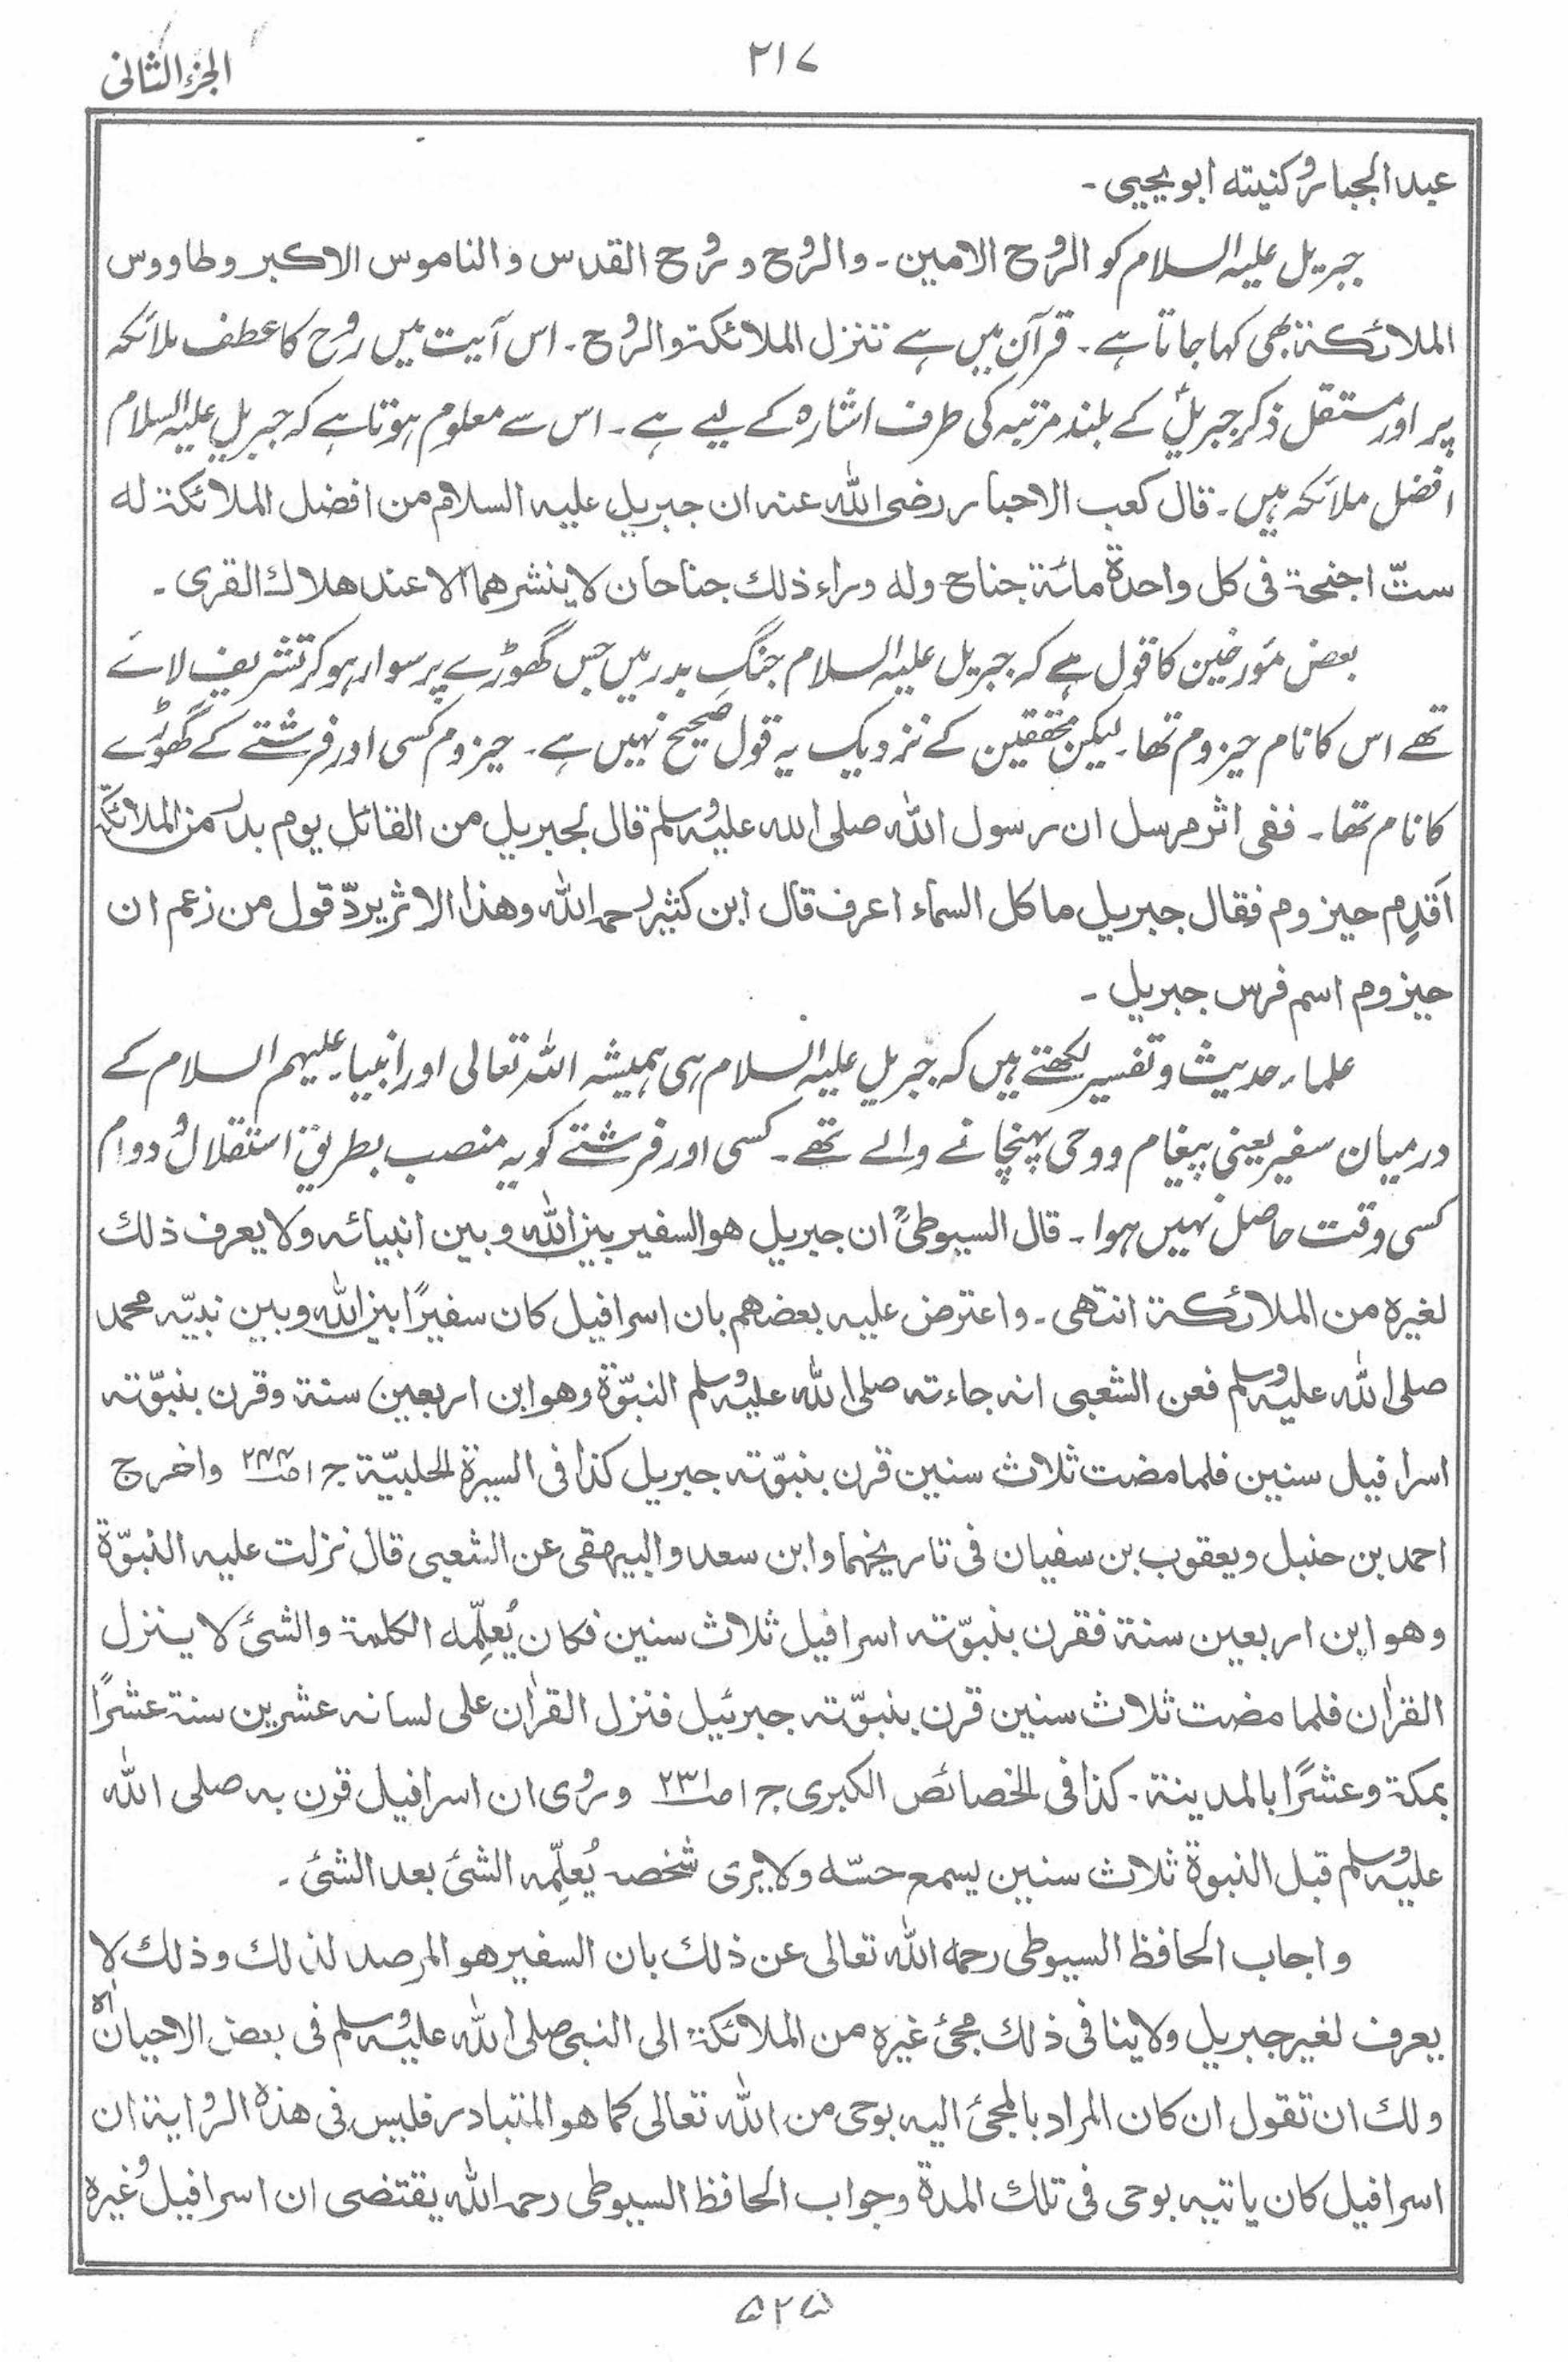 الجزء الثانی
۲۱۷
عبد الجبار وکنیته ابو یحیی ۔
جبریل علیہ السلام کو الروح الامین ۔ والروح و روح القدس و الناموس الاکبر و طاووس
الملائکۃ بھی کہا جاتا ہے ۔ قرآن میں ہے تنزل الملائکۃ والروح ۔ اس آیت میں روح کا عطف ملائکہ
پر اور مستقل ذکر جبریلؑ کے بلند مرتبہ کی طرف اشارہ کے لیے ہے ۔ اس سے معلوم ہوتا ہے کہ جبریل علیہ السلام
افضل ملائکہ ہیں ۔ قال کعب الاحبار رضی اللہ عنہ ان جبریل علیہ السلام من افضل الملائکۃ له
ستّ اجنحۃ فی کل واحدۃ مائۃ جناح وله وراء ذلك جناحان لا ینشرهما الا عند هلاك القری ۔
بعض مؤرخین کا قول ہے کہ جبریل علیہ السلام جنگ بدر میں جس گھوڑے پر سوار ہو کر تشریف لائے
تھے اس کا نام حیزوم تھا ۔ لیکن محققین کے نزدیک یہ قول صحیح نہیں ہے ۔ حیزوم کسی اور فرشتے کے گھوڑے
کا نام تھا ۔ ففی اثر مرسل ان رسول اللہ صلی اللہ علیہ وسلم قال لجبریل من القائل یوم بدر من الملائکۃ
اَقدِم حیزوم فقال جبریل ما کل السماء اعرف قال ابن کثیر رحمہ اللہ وهذا الاثر یردّ قول من زعم ان
حیزوم اسم فرس جبریل ۔
علماء حدیث و تفسیر لکھتے ہیں کہ جبریل علیہ السلام ہی ہمیشہ اللہ تعالی اور انبیاء علیہم السلام کے
درمیان سفیر یعنی پیغام و وحی پہنچانے والے تھے ۔ کسی اور فرشتے کو یہ منصب بطریق استقلال و دوام
کسی وقت حاصل نہیں ہوا ۔ قال السیوطیؒ ان جبریل هو السفیر بین اللہ و بین انبیائه ولا یعرف ذلك
لغیره من الملائکۃ انتهی ۔ واعترض علیه بعضهم بان اسرافیل کان سفیرًا بین اللہ و بین نبیّه محمد
صلی اللہ علیہ وسلم فعن الشعبی انه جاءته صلی اللہ علیہ وسلم النبوّۃ وهو ابن اربعین سنۃ وقرن بنبوّته
اسرافیل سنین فلما مضت ثلاث سنین قرن بنبوّته جبریل کذا فی السیرۃ الحلبیّۃ ج ۱ ص واخرج
احمد بن حنبل ویعقوب بن سفیان فی تاریخهما وابن سعد والبیهقی عن الشعبی قال نزلت علیه النبوّۃ
وهو ابن اربعین سنۃ فقرن بنبوّته اسرافیل ثلاث سنین فکان یُعلِّمه الکلمۃ والشئ لا ینزل
القراٰن فلما مضت ثلاث سنین قرن بنبوّته جبرئیل فنزل القراٰن علی لسانه عشرین سنۃ عشرًا
بمکۃ وعشرًا بالمدینۃ ۔ کذا فی الخصائص الکبری ج ۱ ص۲۳۱ وروی ان اسرافیل قرن به صلی اللہ
علیہ وسلم قبل النبوۃ ثلاث سنین یسمع حسّه ولا یری شخصه یُعلِّمه الشئ بعد الشئ ۔
واجاب الحافظ السیوطی رحمہ اللہ تعالی عن ذلك بان السفیر هو المرصد لذلك وذلك لا
یعرف لغیر جبریل ولا ینافی ذلك مجئ غیره من الملائکۃ الی النبی صلی اللہ علیہ وسلم فی بعض الاحیان اه
ولك ان تقول ان کان المراد بالمجئ الیه بوحی من اللہ تعالی کما هو المتبادر فلیس فی هذه الروایۃ ان
اسرافیل کان یاتیه بوحی فی تلك المدۃ وجواب الحافظ السیوطی رحمہ اللہ یقتضی ان اسرافیل وغیره
۵۲۵